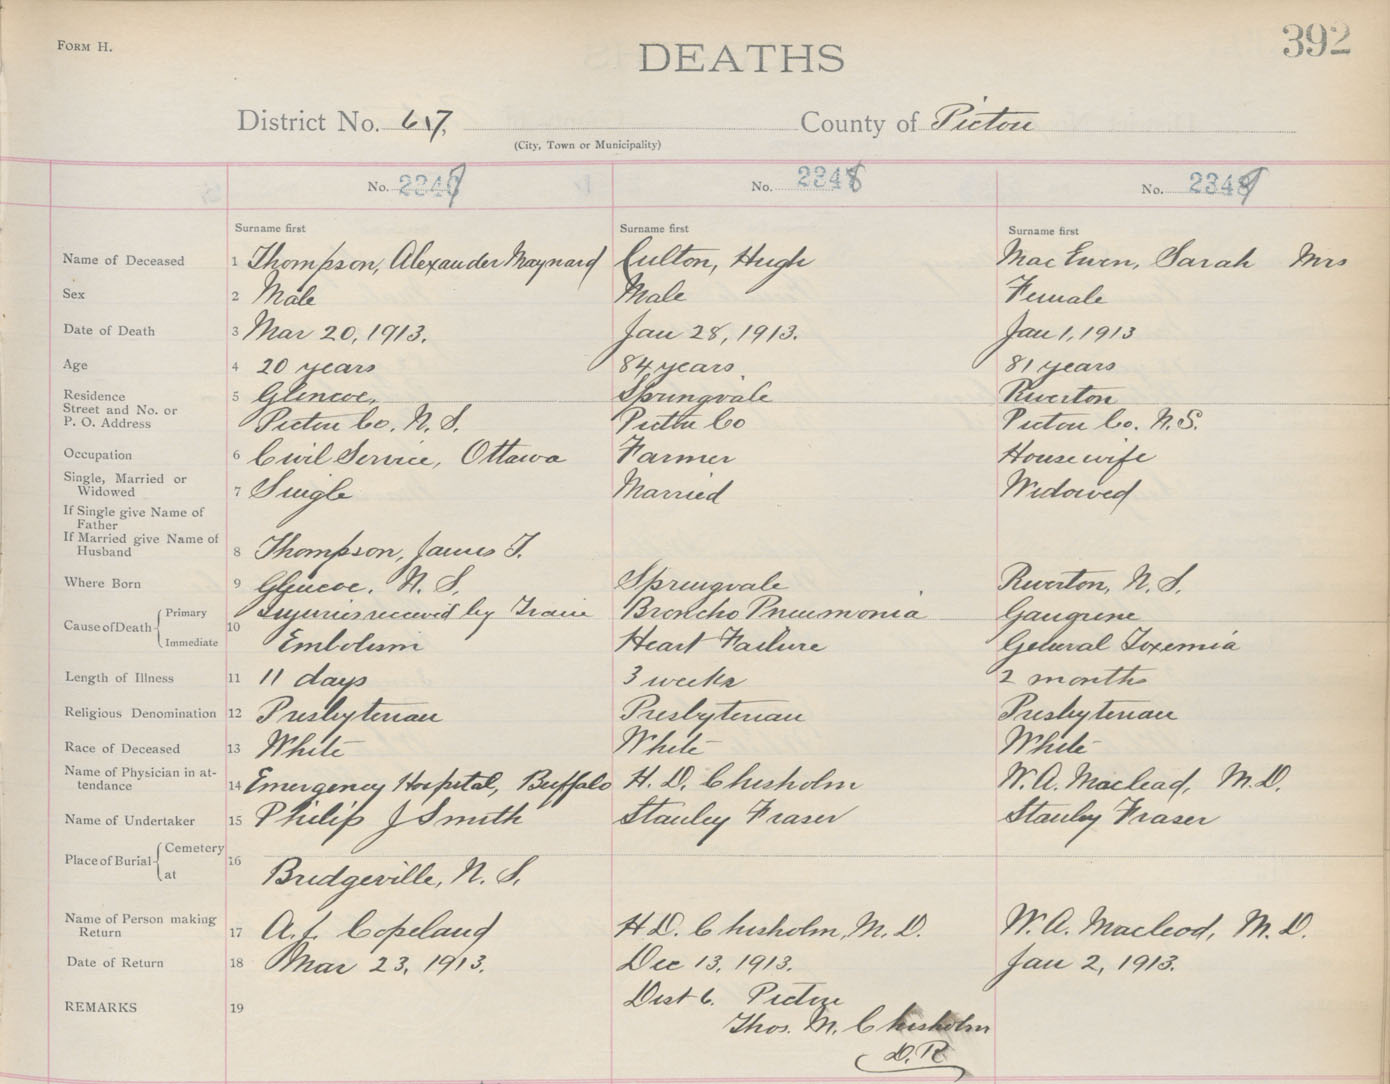 FORM H.
392
DEATHS
District No. 617, County of Pictou
(City, Town or Municipality)
No. 2347 No. 2348 No. 2349
Surname first Surname first Surname first
Name of Deceased 1 Thompson, Alexander Maynard Culton, Hugh MacEwen, Sarah Mrs
Sex 2 Male Male Female
Date of Death 3 Mar 20, 1913. Jan 28, 1913. Jan 1, 1913
Age 4 20 years 84 years 81 years
Residence 5 Glencoe, Springvale Riverton
Street and No. or
P. O. Address Pictou Co. N. S. Pictou Co Pictou Co. N.S.
Occupation 6 Civil Service, Ottawa Farmer Housewife
Single, Married or
Widowed 7 Single Married Widowed
If Single give Name of
Father
If Married give Name of
Husband 8 Thompson, James T.
Where Born 9 Glencoe, N. S. Springvale Riverton, N. S.
Cause of Death Primary 10 Injuries received by Train Broncho Pneumonia Gangrene
Immediate Embolism Heart Failure General Toxemia
Length of Illness 11 11 days 3 weeks 2 months
Religious Denomination 12 Presbyterian Presbyterian Presbyterian
Race of Deceased 13 White White White
Name of Physician in at-
tendance 14 Emergency Hospital, Buffalo H. D. Chisholm W. A. Macleod, M.D.
Name of Undertaker 15 Philip J Smith Stanley Fraser Stanley Fraser
Place of Burial Cemetery 16
at Bridgeville, N. S.
Name of Person making
Return 17 A. J. Copeland H D. Chisholm, M. D. W. A. Macleod, M. D.
Date of Return 18 Mar 23, 1913. Dec 13, 1913. Jan 2, 1913.
REMARKS 19 Dist 6. Pictou
Thos. M. Chisholm
D. R